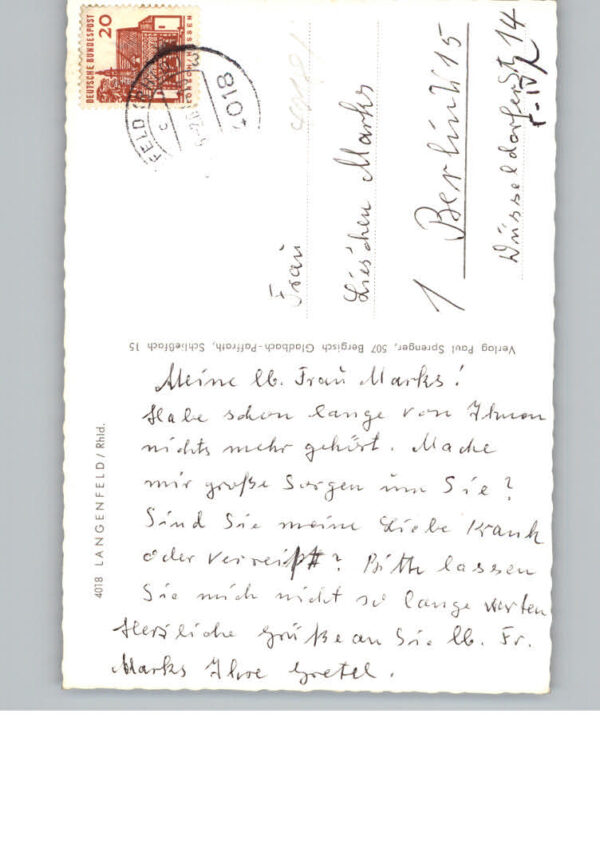 DEUTSCHE BUNDESPOST
20
LORSCH / HESSEN
4018
Frau
Lieschen Marks
1 Berlin W 15
Düsseldorferstr. 14
Verlag Paul Sprenger, 507 Bergisch Gladbach-Paffrath, Schließfach 15
4018 LANGENFELD / Rhld.
Meine lb. Frau Marks!
Habe schon lange von Ihnen
nichts mehr gehört. Mache
mir große Sorgen um Sie?
Sind Sie meine Liebe krank
oder verreißt? Bitte lassen
Sie mich nicht so lange warten
Herzliche Grüße an Sie lb. Fr.
Marks Ihre Gretel.